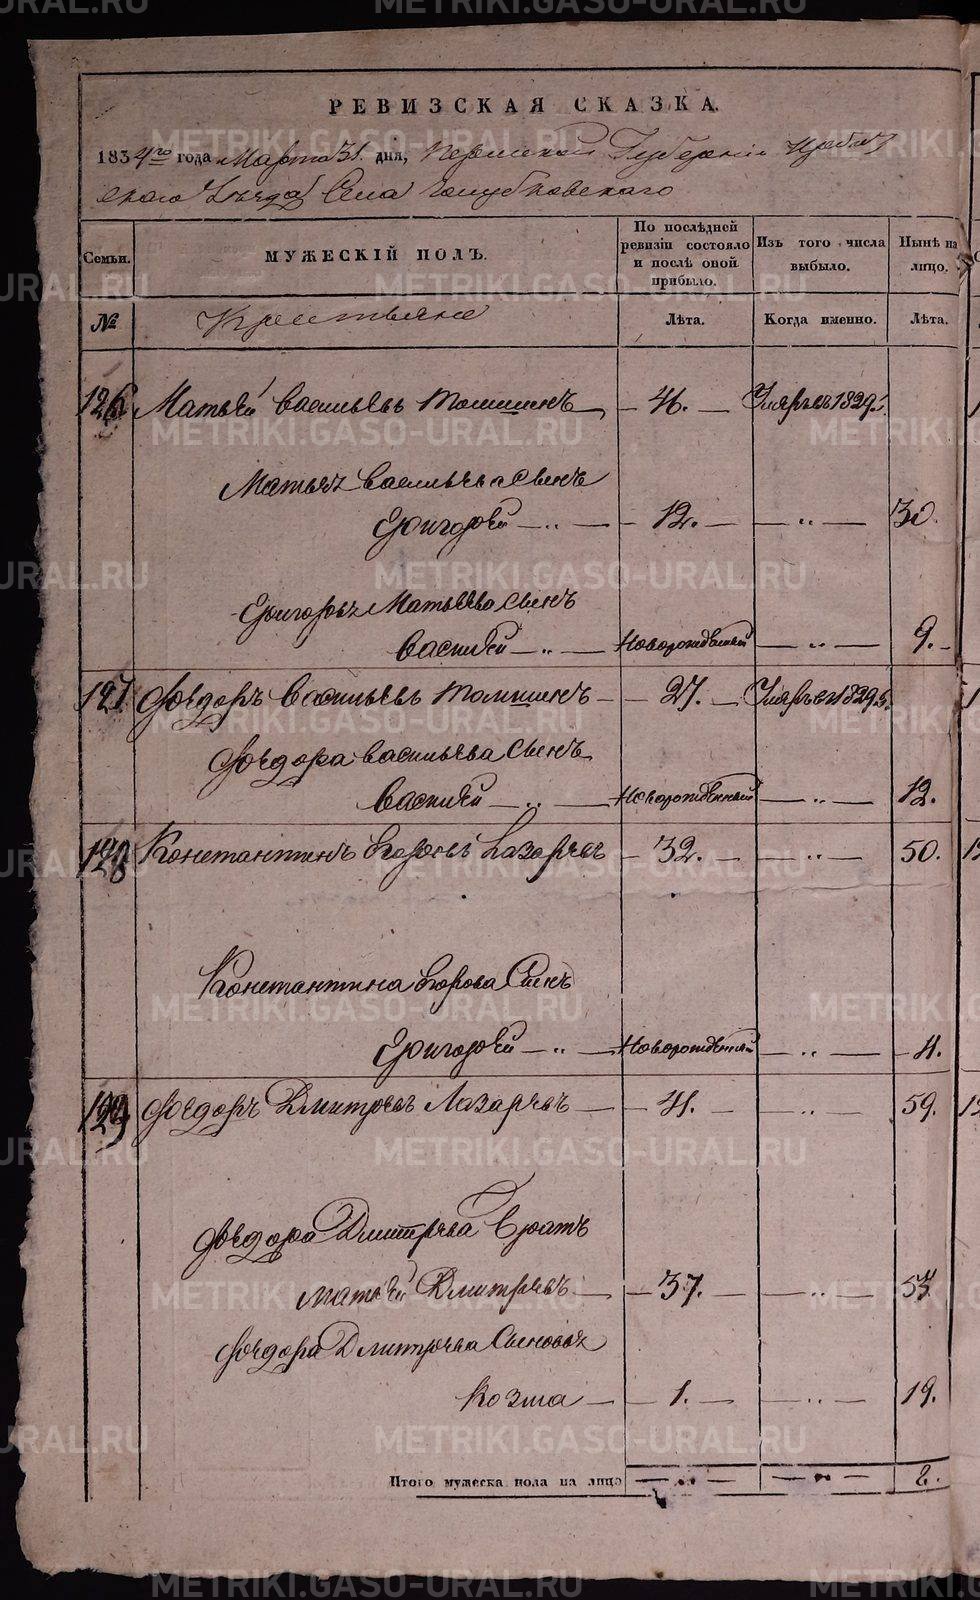 РЕВИЗСКАЯ СКАЗКА.
1834го года Марта 31. дня, Пермской Губернiи Ирбит
скаго Уѣзда Села Голубковскаго
Семьи. МУЖЕСКІЙ ПОЛЪ. По послѣдней ревизіи состояло и послѣ оной прибыло. Изъ того числа выбыло. Нынѣ на лицо.
№ Крестьяне Лѣта. Когда именно. Лѣта.
126 Матвѣй Васильевъ Томшинъ 46. Умяръ въ 1829.
Матвѣя Васильева Сынъ
Григорей — „ — 12. — „ — 30.
Григорья Матвѣева Сынъ
Василей — „ — Новорожденный — „ — 9.
127 Ѳедоръ Васильевъ Томшинъ 27. Умяръ въ 1829.
Ѳедора Васильева Сынъ
Василей — „ — Новорожденный — „ — 12.
128 Константинъ Егоровъ Лазаревъ 32. — „ — 50.
Константина Егорова Сынъ
Григорей — „ — Новорожденный — „ — 4.
129 Ѳедоръ Дмитревъ Лазаревъ 41. — „ — 59.
Ѳедора Дмитрева Братъ
Матвѣй Дмитревъ 37. — „ —
Ѳедора Дмитрева Сыновья
Козма — 1. — „ — 19.
Итого мужеска пола на лицо — „ — — „ —
METRIKI.GASO-URAL.RU